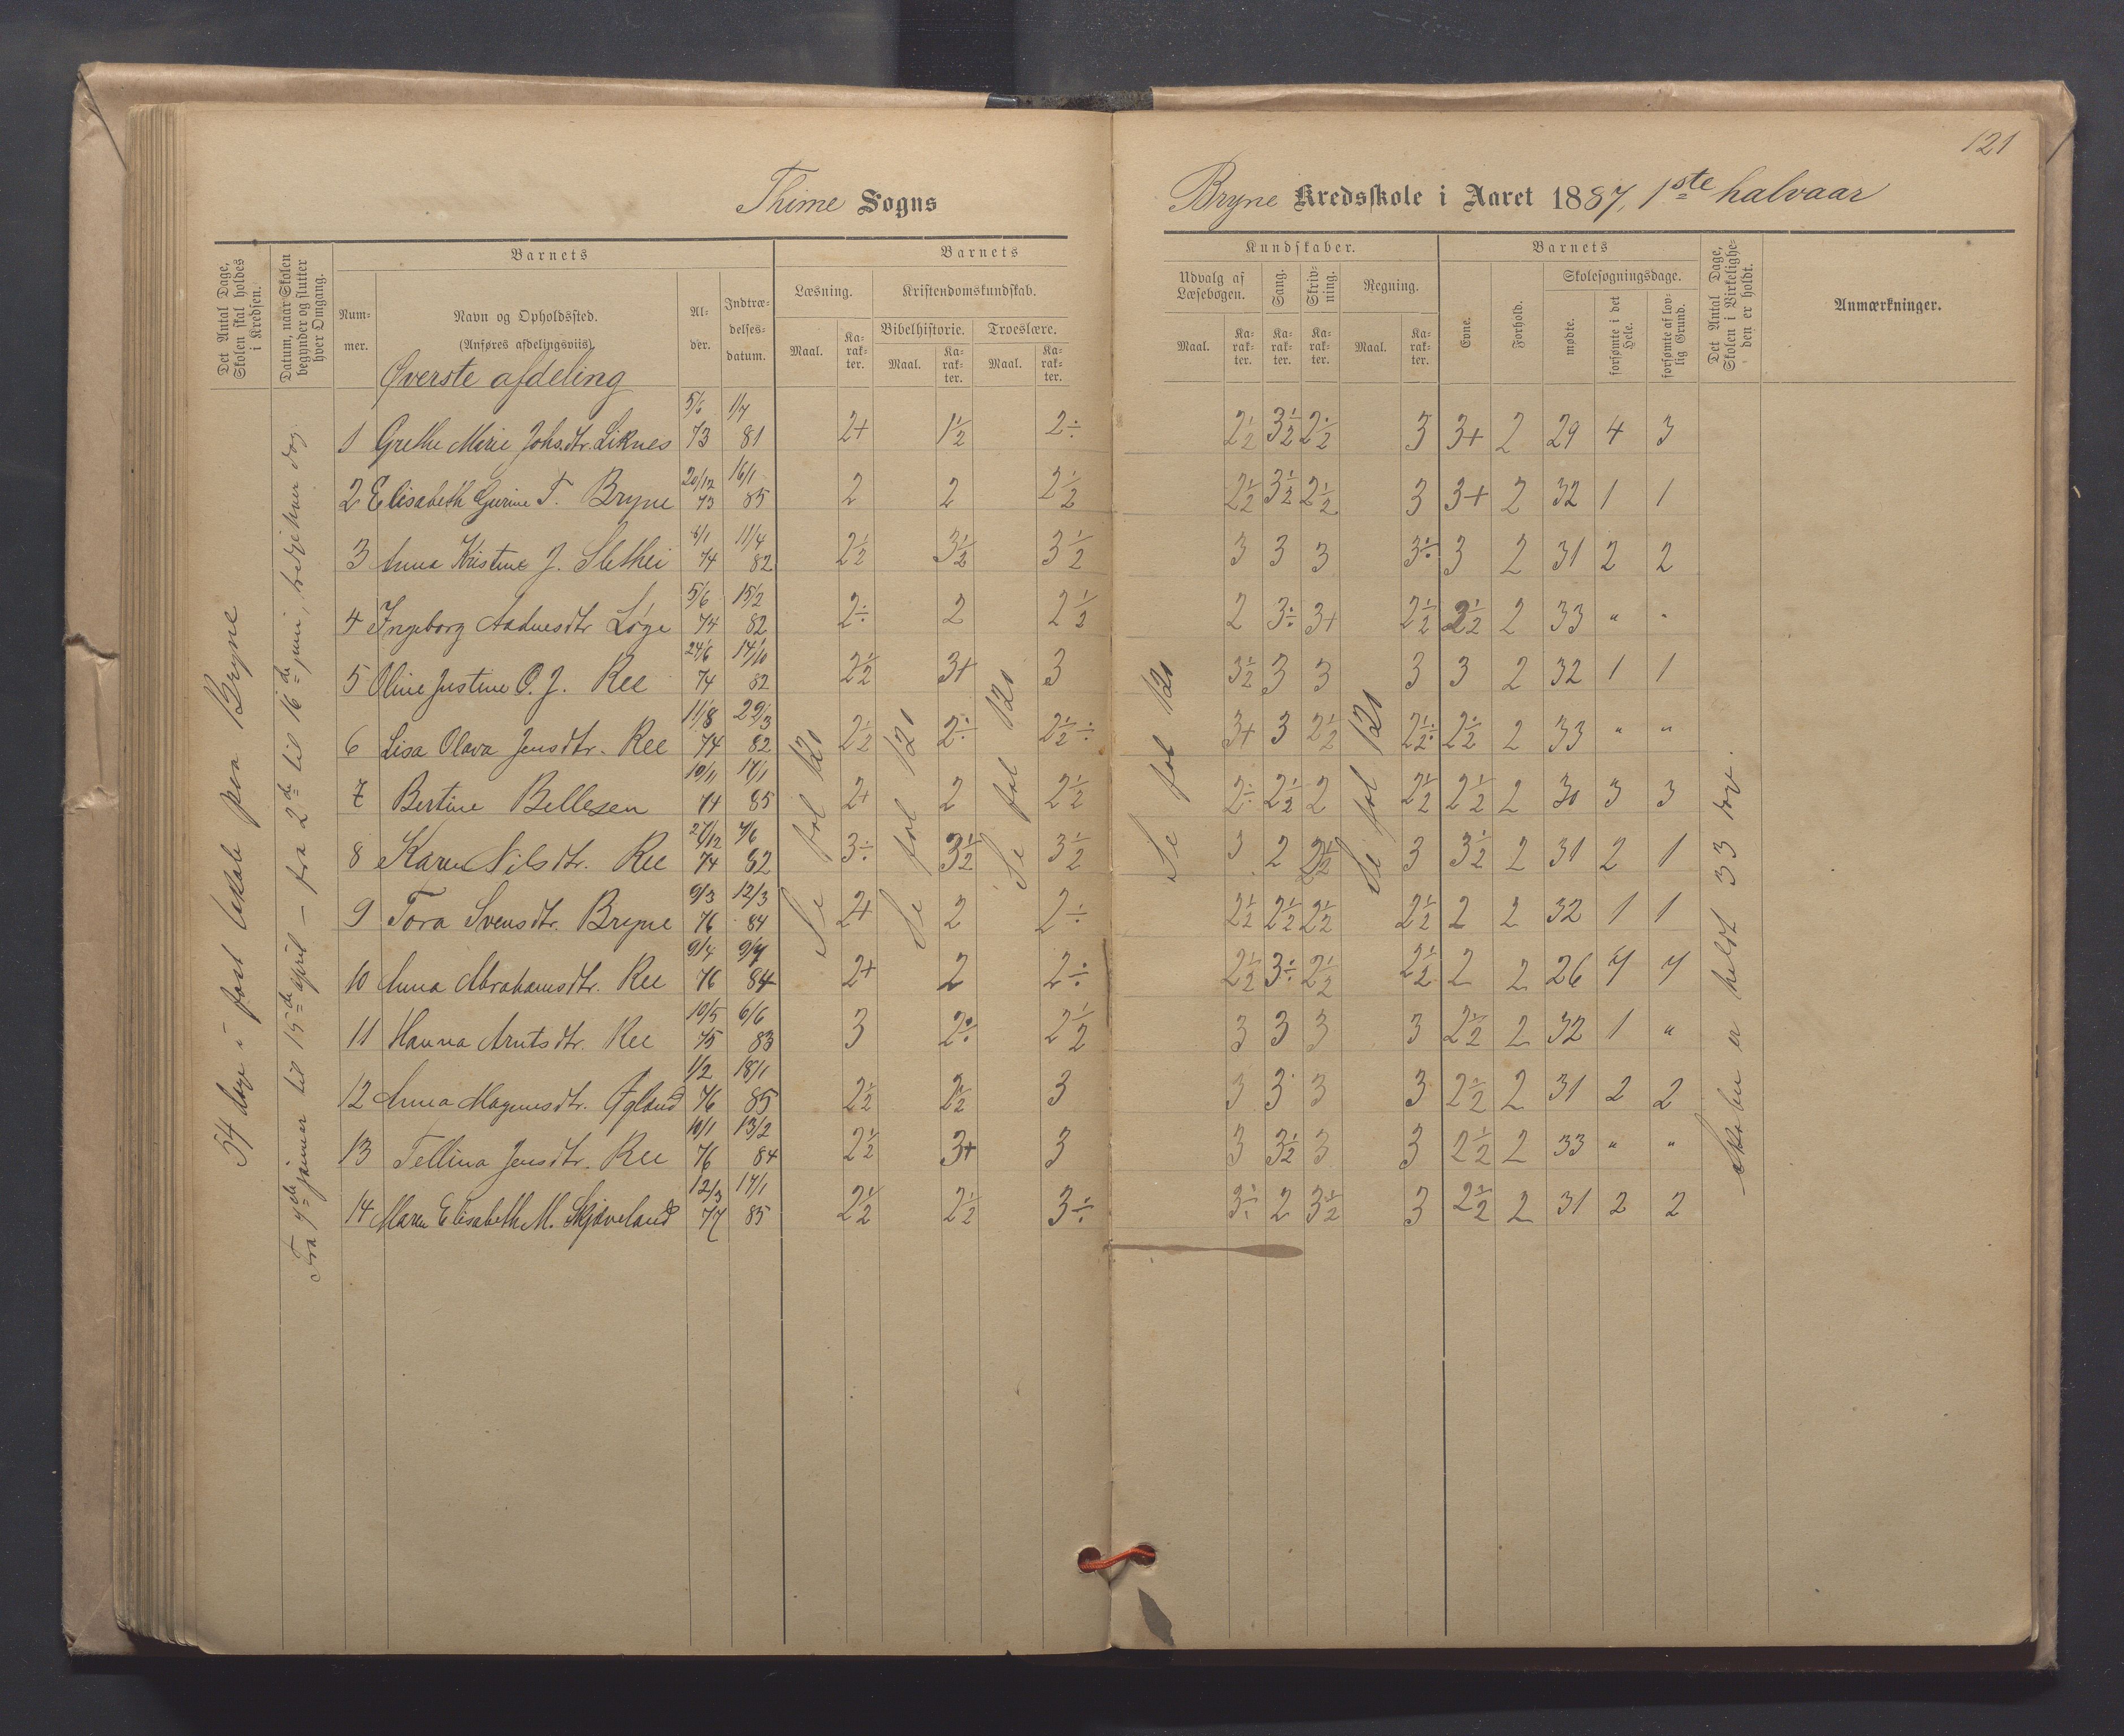 121
Thime Sogns
Bryne Kredsskole i Aaret 1887, 1ste halvaar
Det Antal Dage, Skolen skal holdes i Kredsen.
Datum, naar Skolen begynder og slutter hver Omgang.
Barnets
Nummer.
Navn og Opholdssted.
(Anføres afdelingsviis).
Alder.
Indtrædelses-datum.
Barnets
Læsning.
Kristendomskundskab.
Bibelhistorie. Troeslære.
Maal. Karakter. Maal. Karakter. Maal. Karakter.
Kundskaber.
Udvalg af Læsebogen.
Sang.
Skrivning.
Regning.
Maal. Karakter. Karakter. Karakter. Maal. Karakter.
Barnets
Evne.
Forhold.
Skolesøgningsdage.
mødte.
forsømte i det Hele.
forsømte af lovlig Grund.
Det Antal Dage, Skolen i Virkeligheden er holdt.
Anmærkninger.
Øverste afdeling
54 dage i fast lokale paa Bryne
Fra 7de januar til 15de april – fra 2de til 16de juni, tredje hver dag.
1 Grethe Marie Johs.dtr. Liknes 5/6 73 1/7 81 2+ 1½ 2÷ 2½ 3½ 2½ 3 3+ 2 29 4 3
2 Elisabeth Gurine T. Bryne 20/12 73 16/1 85 2 2 2½ 2½ 3½ 2½ 3 3+ 2 32 1 1
3 Anna Kristine J. Slethei 6/1 74 11/4 82 2½ 3½ 3½ 3 3 3 3÷ 3 2 31 2 2
4 Ingeborg Aadnesdtr Løge 5/6 74 15/2 82 2÷ 2 2½ 2 3÷ 3+ 2½ 2½ 2 33 " "
5 Oline Justine O. J. Ree 24/6 74 14/10 82 2½ 3+ 3 3½ 3 3 3 3 2 32 1 1
6 Lisa Olava Jensdtr. Ree 11/8 74 22/3 82 2½ 2÷ 2½÷ 3+ 3 2½ 2½÷ 2½ 2 33 " "
7 Bertine Bellesen 10/11 74 17/1 85 2+ 2 2½ 2÷ 2½ 2 2½ 2½ 2 30 3 3
8 Karen Nilsdtr. Ree 27/12 74 7/6 82 3÷ 3½ 3½ 3 2 2½ 3 3½ 2 31 2 1
9 Tora Svensdtr. Bryne 9/3 76 12/3 84 2+ 2 2÷ 2½ 2½ 2½ 2½ 2 2 32 1 1
10 Anna Abrahamsdtr. Ree 9/4 76 9/7 84 2+ 2 2÷ 2½ 3÷ 2½ 2½ 2 2 26 7 7
11 Hanna Arntsdtr. Ree 10/5 75 6/6 83 3 2÷ 2½ 3 3 3 3 2½ 2 32 1 "
12 Anna Magnusdtr. Øgland 1/2 76 18/1 85 2½ 2½ 3 3 3 3 3 2½ 2 31 2 2
13 Tellina Jensdtr. Ree 10/1 76 13/2 84 2½ 3+ 3 3 3½ 3 3 2½ 2 33 " "
14 Maren Elisabeth M. Skjæveland 12/3 77 17/1 85 2½ 2½ 3÷ 3÷ 2 3½ 3 2½ 2 31 2 2
Se fol 120
Se fol 120
Se fol 120
Se fol 120
Se fol 120
Skolen er holdt 33 dage.